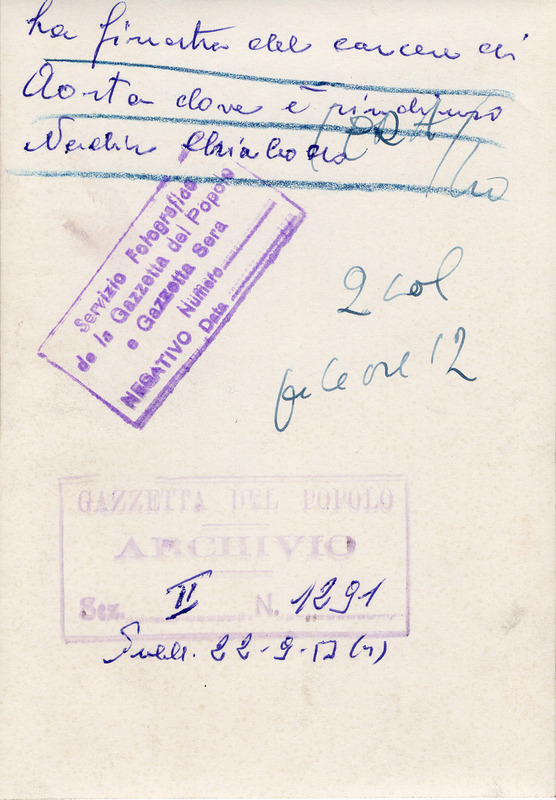 La finestra del carcere di
Aosta dove è rinchiuso
Nadir Chiabodo
Servizio Fotografico
de la Gazzetta del Popolo
e Gazzetta Sera
NEGATIVO Numero
Data
2 col
ore 12
GAZZETTA DEL POPOLO
ARCHIVIO
Sez. II N. 1291
Pubbl. 22-9-57 (4)